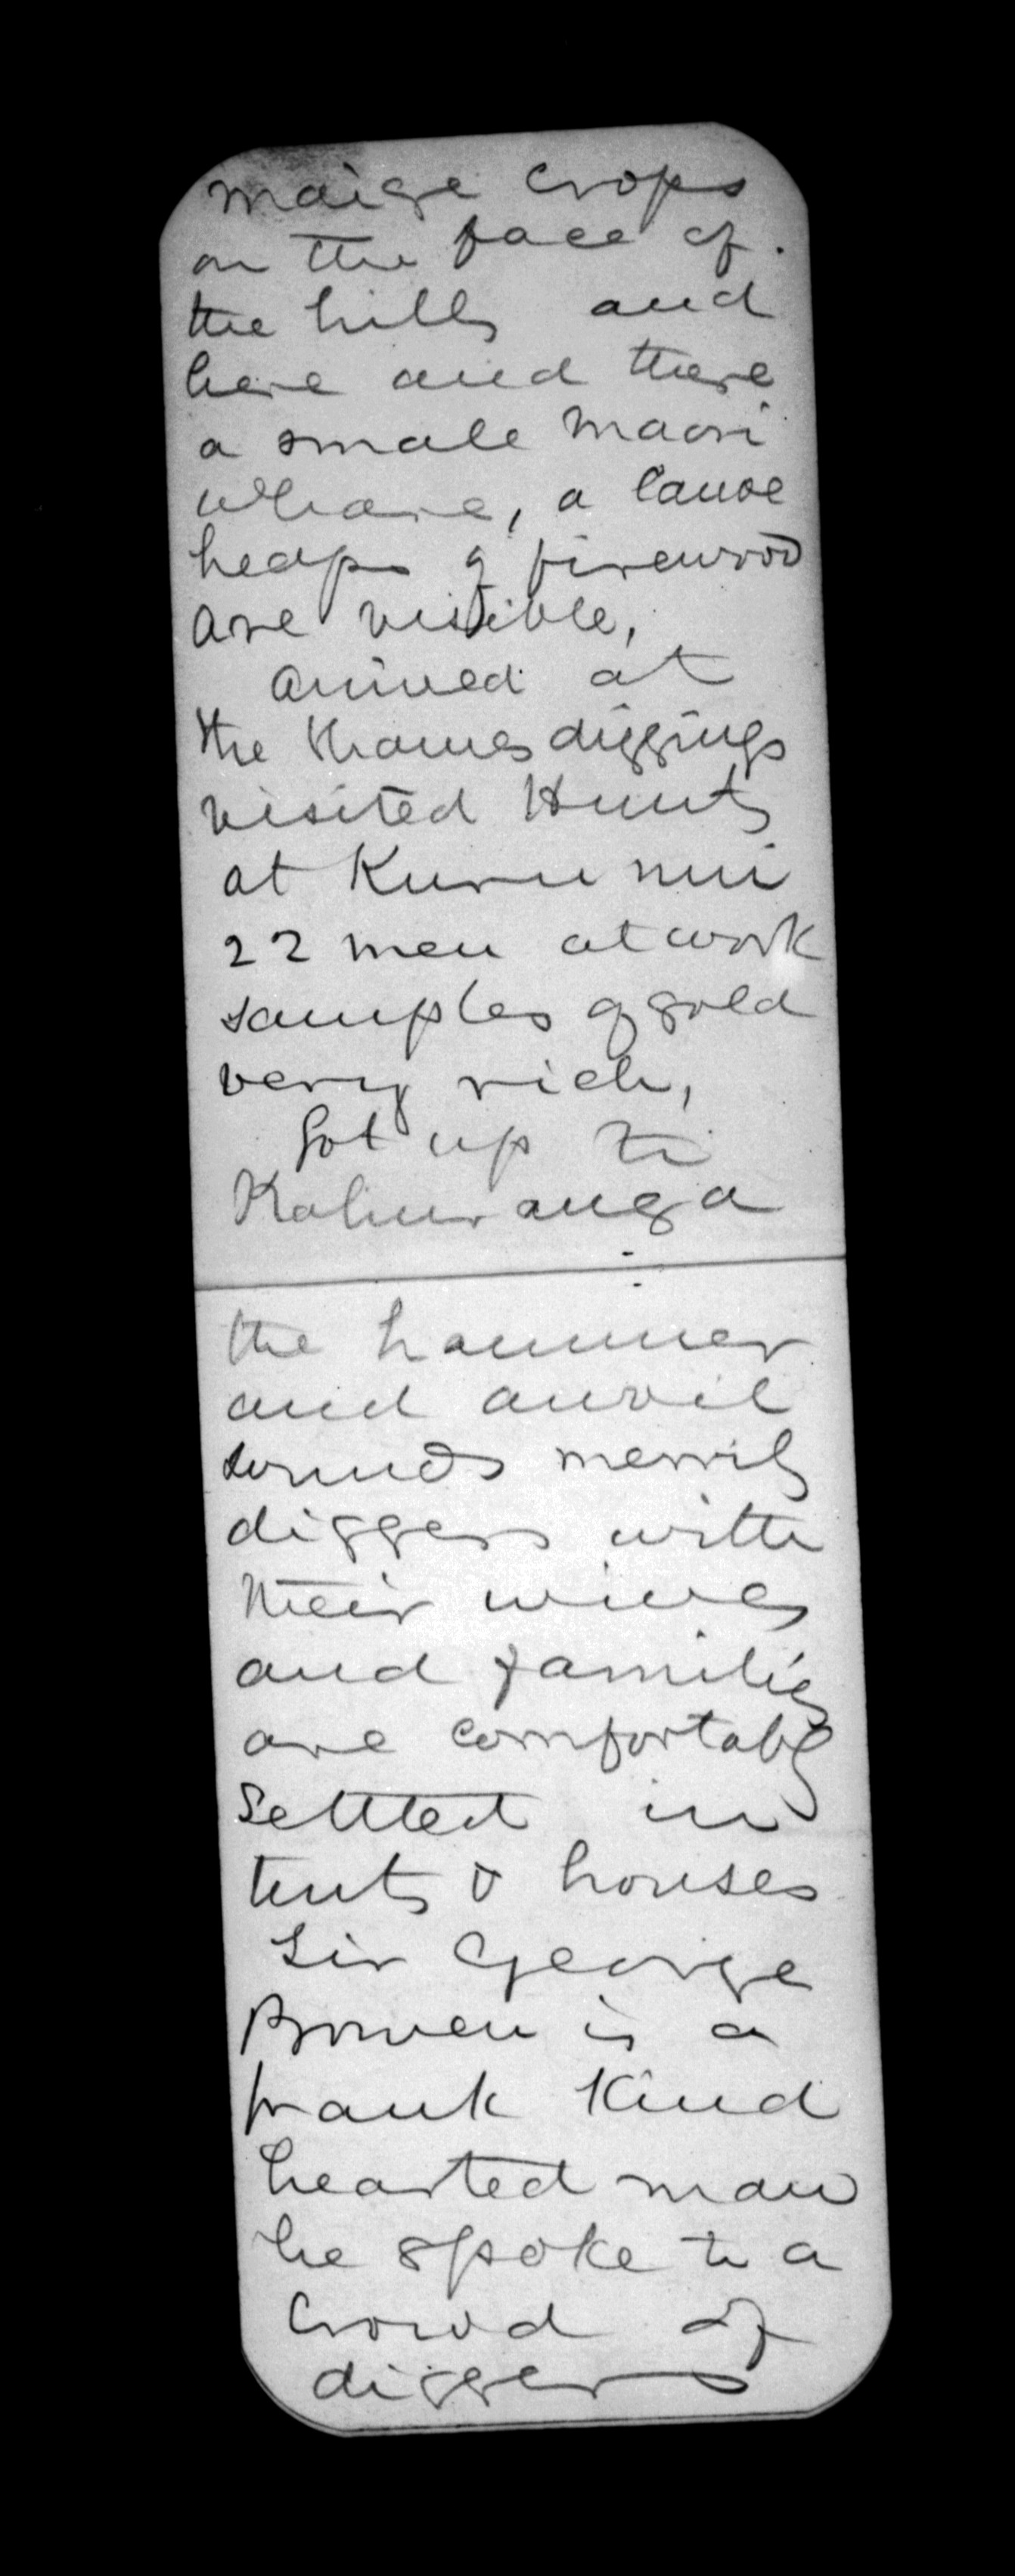 maize crops
on the face of
the hills and
here and there
a small maori
whare, a canoe
heaps of firewood
are visible,
arrived at
the Thames diggings
visited Hunts
at Kuru nui
22 men at work
samples of gold
very rich,
Got up to
Kahuranga
the hammer
and anvil
sounds merrily
diggers with
their wives
and families
are comfortably
settled in
tents & houses
Sir George
Bowen is a
frank kind
hearted man
he spoke to a
crowd of
diggers